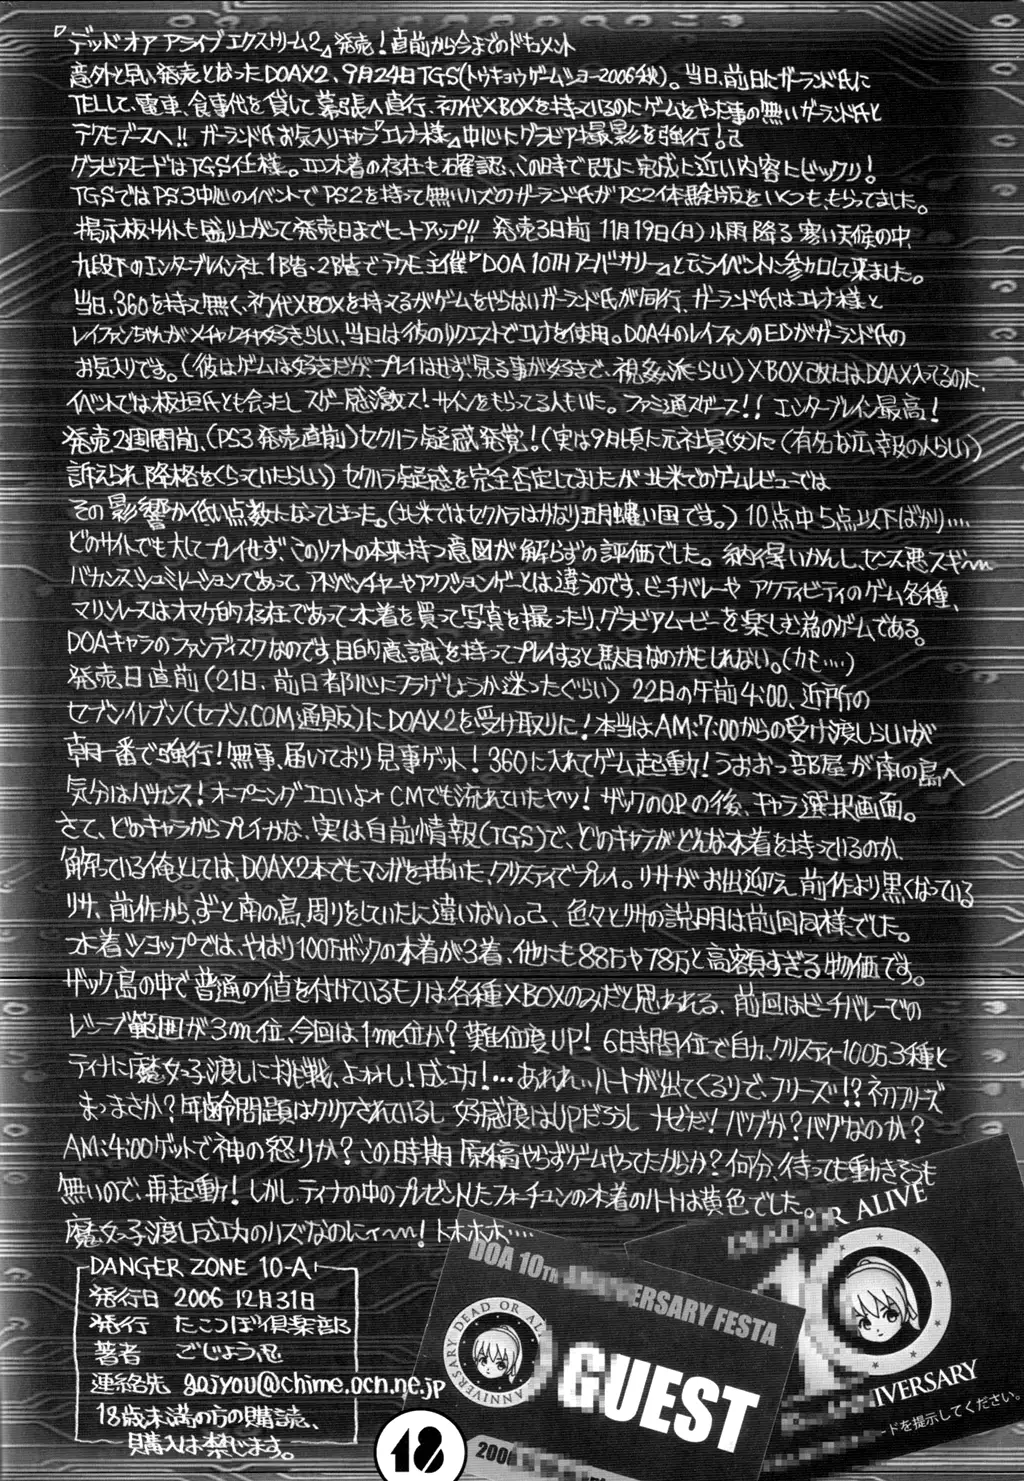 『デッドオアアライブエクストリーム2』発売!直前から今までのドキュメント
意外と早い発表となったDOAX2、9月24日TGS(トウキョウゲームショー2006秋)。当日、前日にガーランド氏に
TELして、電車、食事代を貸して幕張へ直行、初代XBOXを持っているのにゲームをやった事の無いガーランド氏と
テクモブースへ!! ガーランド氏お気入りキャラ『エレナ様』中心にグラビア撮影を強行!
グラビアモードはTGS仕様。エロ水着の存在も確認、この時で既に完成に近い内容にビックリ!
TGSではPS3中心のイベントでPS2を持って無いハズのガーランド氏がPS2体験版をいくつも、もらってました。
掲示板サイトも盛り上がって発売日までヒートアップ!! 発売3日前 11月19日(日)小雨降る寒い天候の中、
九段下のエンターブレイン社1階、2階でテクモ主催『DOA 10THアニバーサリー』と云うイベントに参加して来ました。
当日、360を持って無く、初代XBOXを持ってるがゲームをやらないガーランド氏が同行、ガーランド氏はエレナ様と
レイファンちゃんがメチャクチャ好きらしい、当日は彼のリクエストでエレナを使用。DOA4のレイファンのEDがガーランド氏の
お気入りです。(彼はゲームは好きだが、プレイはせず、見る事が好きで、視姦派らしい)XBOX改にはDOAX入ってるのに、
イベントでは板垣氏とも会ったしスゲー感激ス!サインをもらってる人もいた。ファミ通スゲース!! エンターブレイン最高!
発売2週間前、(PS3発売直前)セクハラ疑惑発覚!(実は9月頃に元社員(女)に(有名な広報の人らしい)
訴えられ降格をくらっていたらしい)セクハラ疑惑を完全否定してましたが北米でのゲームレビューでは
その影響か低い点数になってしまった。(北米ではセクハラはかなり五月蠅い国です。)10点中5点以下ばかり‥‥
どのサイトでも大してプレイせず、このソフトの本来持つ意図が解らずの評価でした。納得いかんし、センス悪スギ〜
バカンスシュミレーションであって、アドベンチャーやアクションゲーとは違うのです、ビーチバレーやアクティビティのゲーム各種、
マリンレースはオマケ的存在であって水着を買って写真を撮ったり、グラビアムービーを楽しむ為のゲームである。
DOAキャラのファンディスクなのです、目的意識を持ってプレイすると駄目なのかもしれない。(カモ‥‥)
発売日直前(21日、前日都心にフラゲしようか迷ったぐらい)22日の午前4:00、近所の
セブンイレブン(セブン.COM通販)にDOAX2を受け取りに!本当はAM:7:00からの受け渡しらしいが
朝一番で強行!無事、届いており見事ゲット!360に入れてゲーム起動!うおおっ部屋が南の島へ
気分はバカンス!オープニングエロいよォCMでも流れていたヤツ!ザックのOPの後、キャラ選択画面。
さて、どのキャラからプレイかな、実は自前情報(TGS)で、どのキャラがどんな水着を持っているのか、
解っている俺としては、DOAX2本でもマンガを描いた、クリスティでプレイ。リサがお出迎え、前作より黒くなっている
リサ、前作から、ずーと南の島、周りをしていたに違いない。色々とリサの説明は前回同様でした。
水着ショップでは、やはり100万ザックの水着が3着、他にも88万や78万と高額すぎる物価です。
ザック島の中で普通の値を付けているモノは各種XBOXのみだと思われる、前回はビーチバレーでの
レシーブ範囲が3m位、今回は1m位か?難易度UP!6日時間位で自力、クリスティー100万3種と
ティナに魔女っ子渡しに挑戦、よォォし!成功!‥‥あれれぃハートが出てくるりで、フリーズ!?初フリーズ
まっまさか?年齢問題はクリアされているし好感度はUPだろうし ナゼだ!バグか?バグなのか?
AM:4:00ゲットで神の怒りか?この時期原稿やらずゲームやってたからか?何分、待っても動きそうも
無いので、再起動!しかし、ティナの中のプレゼントしたフォーチュンの水着のハートは黄色でした。
魔女っ子渡し成功のハズなのにィ〜!トホホホ‥‥
DANGER ZONE 10-A
発行日 2006 12月31日
発行 たこつぼ倶楽部
著者 ごじょう忍
連絡先 gojyou@chime.ocn.ne.jp
18歳未満の方の購読、
購入は禁じます。
DOA 10TH ANNIVERSARY FESTA
ANNIVERSARY DEAD OR AL
GUEST
2006
DEAD OR ALIVE
10
ANNIVERSARY
ードを提示してください。
18